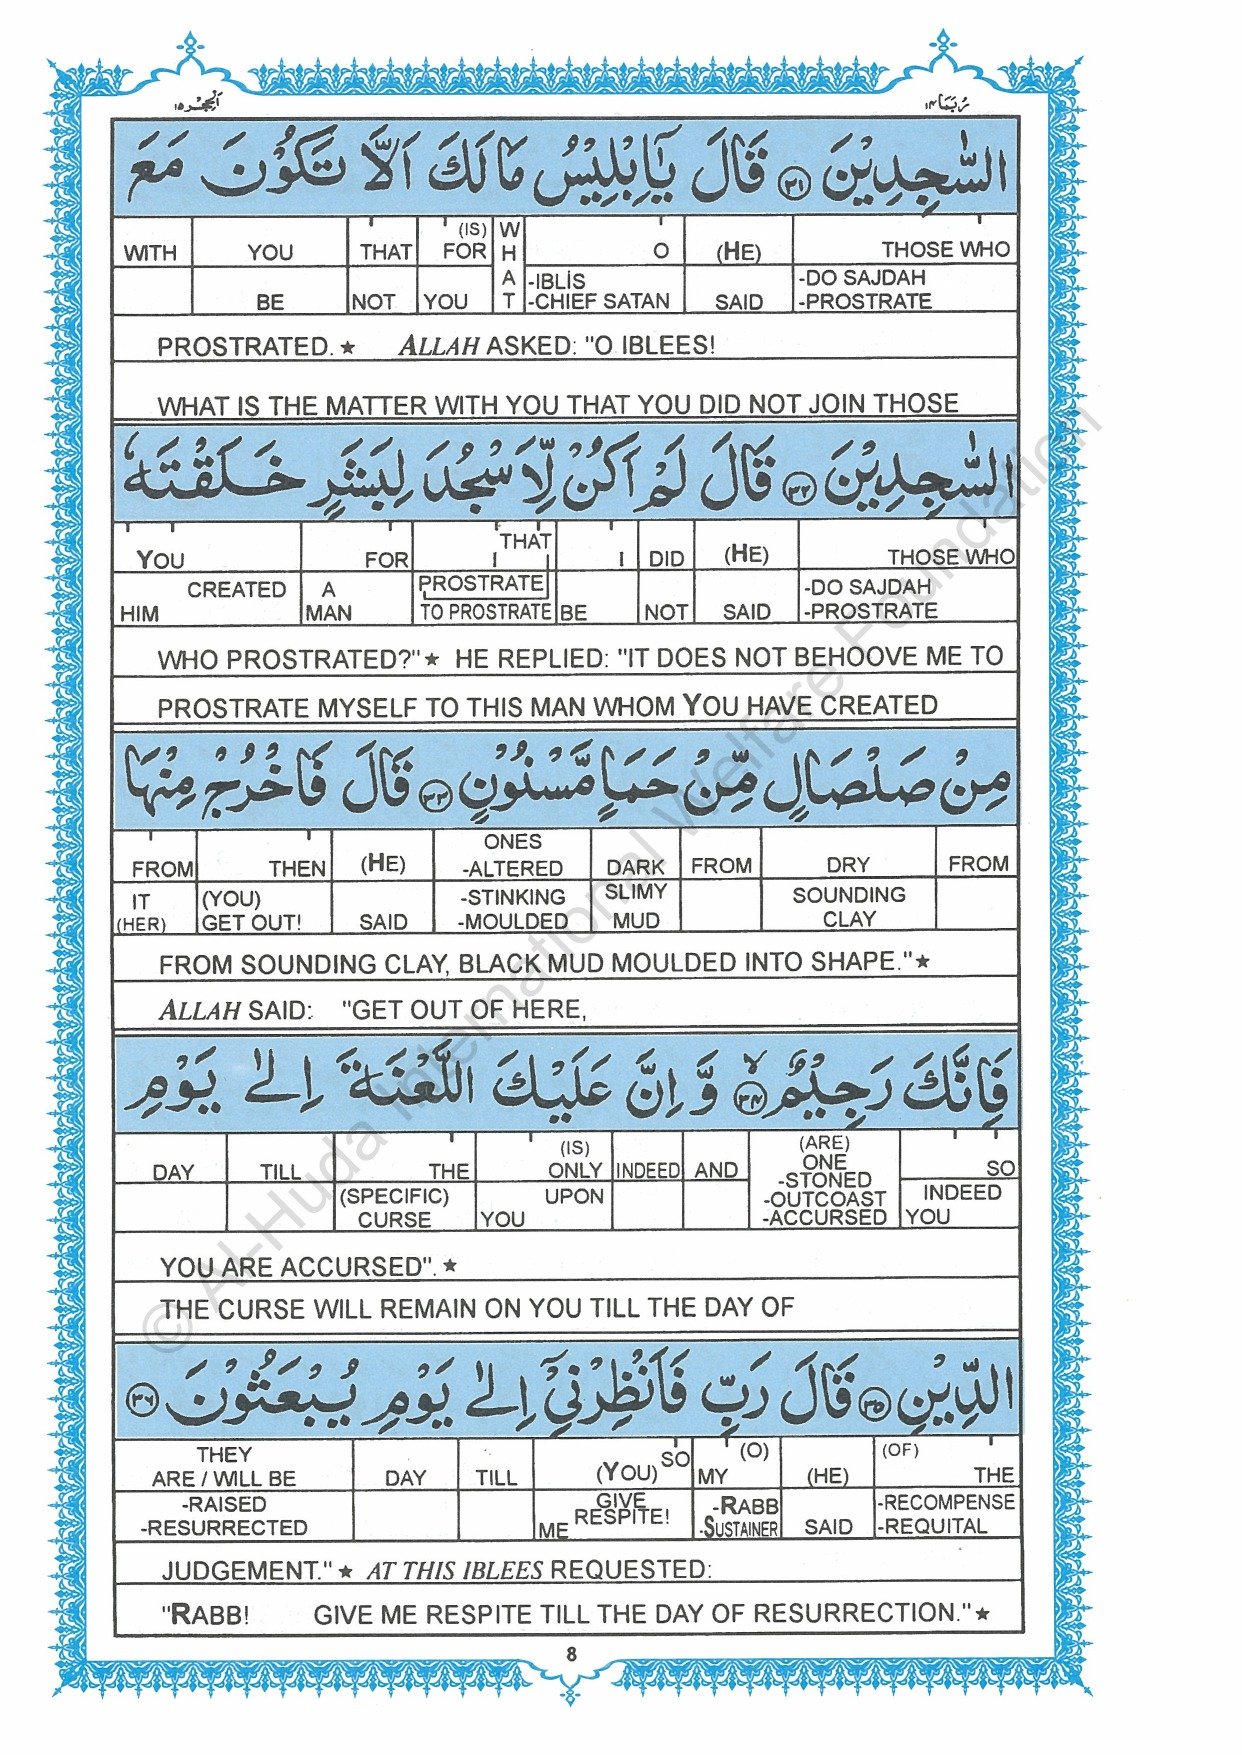 رُبَمَا ١٤ اَلْحِجْر ١٥
السّٰجِدِيْنَ ٣١ قَالَ يٰۤاِبْلِيْسُ مَا لَكَ اَلَّا تَكُوْنَ مَعَ
WITH YOU THAT (IS) FOR WHAT O (HE) THOSE WHO
BE NOT YOU -IBLİS -CHIEF SATAN SAID -DO SAJDAH -PROSTRATE
PROSTRATED.★ ALLAH ASKED: "O IBLEES!
WHAT IS THE MATTER WITH YOU THAT YOU DID NOT JOIN THOSE
السّٰجِدِيْنَ ٣٢ قَالَ لَمْ اَكُنْ لِّاَسْجُدَ لِبَشَرٍ خَلَقْتَهٗ
YOU FOR THAT I I DID (HE) THOSE WHO
CREATED HIM A MAN PROSTRATE TO PROSTRATE BE NOT SAID -DO SAJDAH -PROSTRATE
WHO PROSTRATED?"★ HE REPLIED: "IT DOES NOT BEHOOVE ME TO
PROSTRATE MYSELF TO THIS MAN WHOM YOU HAVE CREATED
مِنْ صَلْصَالٍ مِّنْ حَمَاٍ مَّسْنُوْنٍ ٣٣ قَالَ فَاخْرُجْ مِنْهَا
FROM THEN (HE) ONES -ALTERED DARK FROM DRY FROM
IT (HER) (YOU) GET OUT! SAID -STINKING -MOULDED SLIMY MUD SOUNDING CLAY
FROM SOUNDING CLAY, BLACK MUD MOULDED INTO SHAPE."★
ALLAH SAID: "GET OUT OF HERE,
فَاِنَّكَ رَجِيْمٌ ٣٤ وَّ اِنَّ عَلَيْكَ اللَّعْنَةَ اِلٰى يَوْمِ
DAY TILL THE (IS) ONLY INDEED AND (ARE) ONE -STONED SO
(SPECIFIC) CURSE UPON YOU -OUTCOAST -ACCURSED INDEED YOU
YOU ARE ACCURSED".★
THE CURSE WILL REMAIN ON YOU TILL THE DAY OF
الدِّيْنِ ٣٥ قَالَ رَبِّ فَاَنْظِرْنِيْۤ اِلٰى يَوْمِ يُبْعَثُوْنَ ٣٦
THEY ARE / WILL BE DAY TILL SO (YOU) (O) MY (HE) (OF) THE
-RAISED -RESURRECTED GIVE RESPITE! ME -RABB -SUSTAINER SAID -RECOMPENSE -REQUITAL
JUDGEMENT."★ AT THIS IBLEES REQUESTED:
"RABB! GIVE ME RESPITE TILL THE DAY OF RESURRECTION."★
8
© Al-Huda International Welfare Foundation